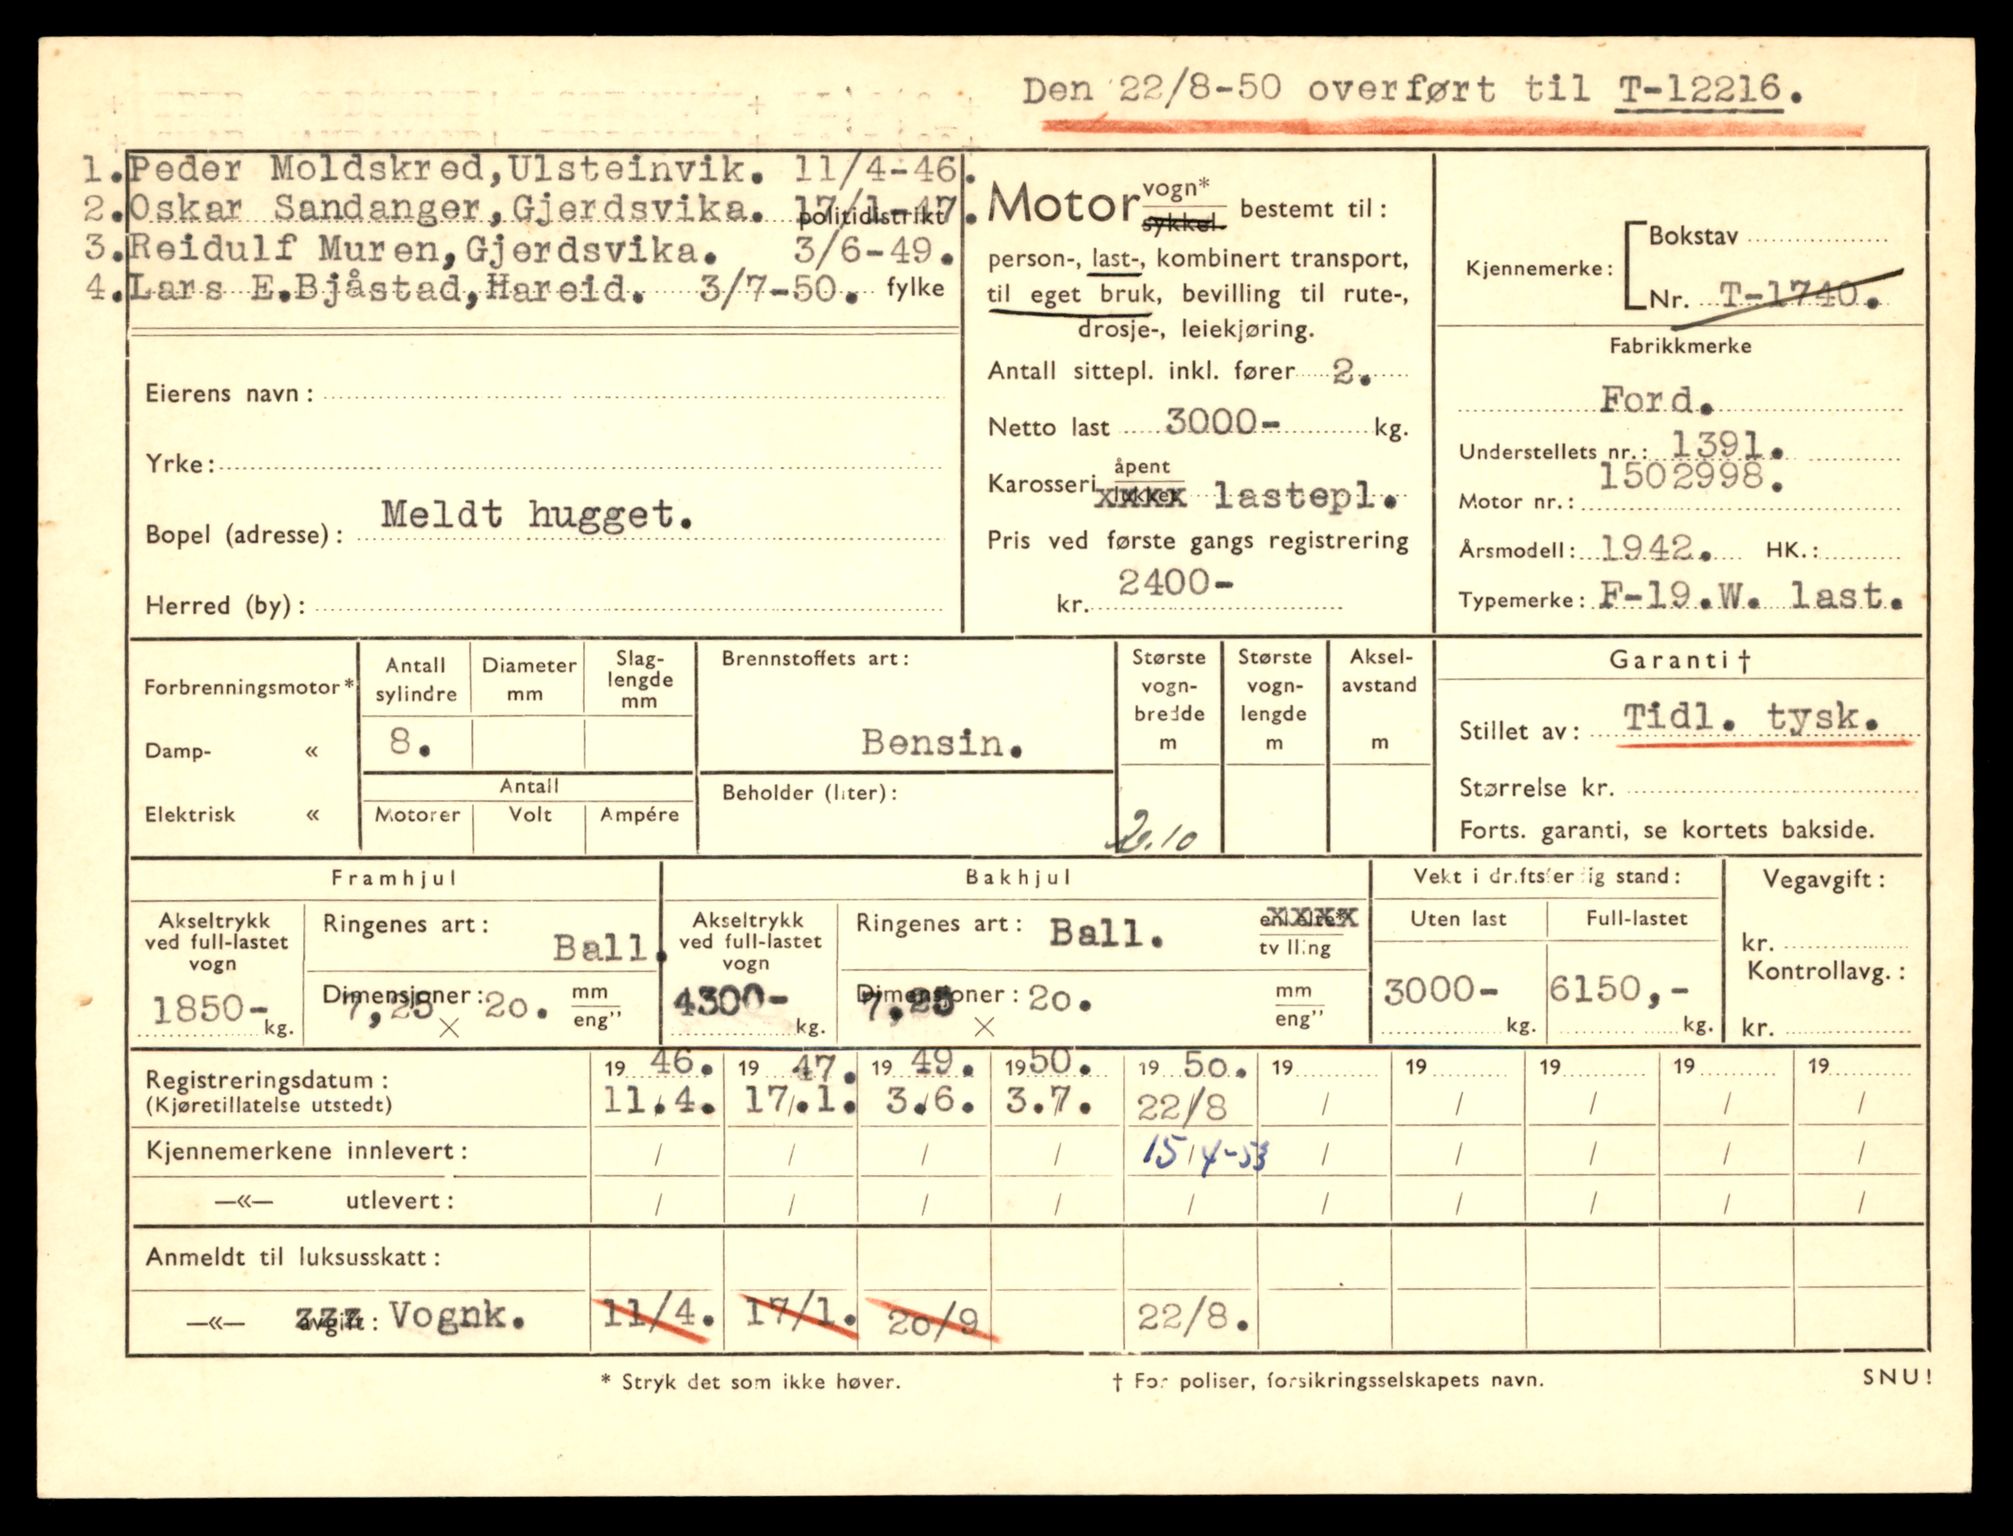 Den 22/8-50 overført til T-12216.
1. Peder Moldskred, Ulsteinvik. 11/4-46.
2. Oskar Sandanger, Gjerdsvika. 17/1-47.
politidistrikt
3. Reidulf Muren, Gjerdsvika. 3/6-49.
4. Lars E. Bjåstad, Hareid. 3/7-50. fylke
Eierens navn:
Yrke:
Meldt hugget.
Bopel (adresse):
Herred (by):
Motor vogn* sykkel. bestemt til:
person-, last-, kombinert transport,
til eget bruk, bevilling til rute-,
drosje-, leiekjøring.
Antall sittepl. inkl. fører 2.
Netto last 3000- kg.
Karosseri åpent lukket xxxx lastepl.
Pris ved første gangs registrering
kr. 2400-
Kjennemerke: Bokstav
Nr. T-1740.
Fabrikkmerke
Ford.
Understellets nr.: 1391.
1502998.
Motor nr.:
Årsmodell: 1942. HK.:
Typemerke: F-19.W. last.
Forbrenningsmotor*
Damp- «
Elektrisk «
Antall sylindre
Diameter mm
Slag-lengde mm
8.
Antall
Motorer Volt Ampére
Brennstoffets art:
Bensin.
Beholder (liter):
Største vogn-bredde m
2.10
Største vogn-lengde m
Aksel-avstand m
Garanti †
Stillet av: Tidl. tysk.
Størrelse kr.
Forts. garanti, se kortets bakside.
Framhjul
Akseltrykk ved full-lastet vogn
1850- kg.
Ringenes art: Ball.
Dimensjoner: 7,25 × 20. mm eng"
Bakhjul
Akseltrykk ved full-lastet vogn
4300- kg.
Ringenes art: Ball. enkelte* xxxx tvilling
Dimensjoner: 7,25 × 20. mm eng"
Vekt i driftsferdig stand:
Uten last Full-lastet
3000- kg. 6150,- kg.
Vegavgift:
kr.
Kontrollavg.:
kr.
Registreringsdatum: 19 46. 19 47. 19 49. 19 50. 19 50. 19 19 19 19 19
(Kjøretillatelse utstedt) 11.4. 17.1. 3.6. 3.7. 22/8 / / / / /
Kjennemerkene innlevert: / / / / 15/4-53 / / / / /
—«— utlevert: / / / / / / / / / /
Anmeldt til luksusskatt:
—«— avgift: zzz Vognk. 11/4. 17/1. 20/9 22/8.
* Stryk det som ikke høver. † For poliser, forsikringsselskapets navn. SNU!